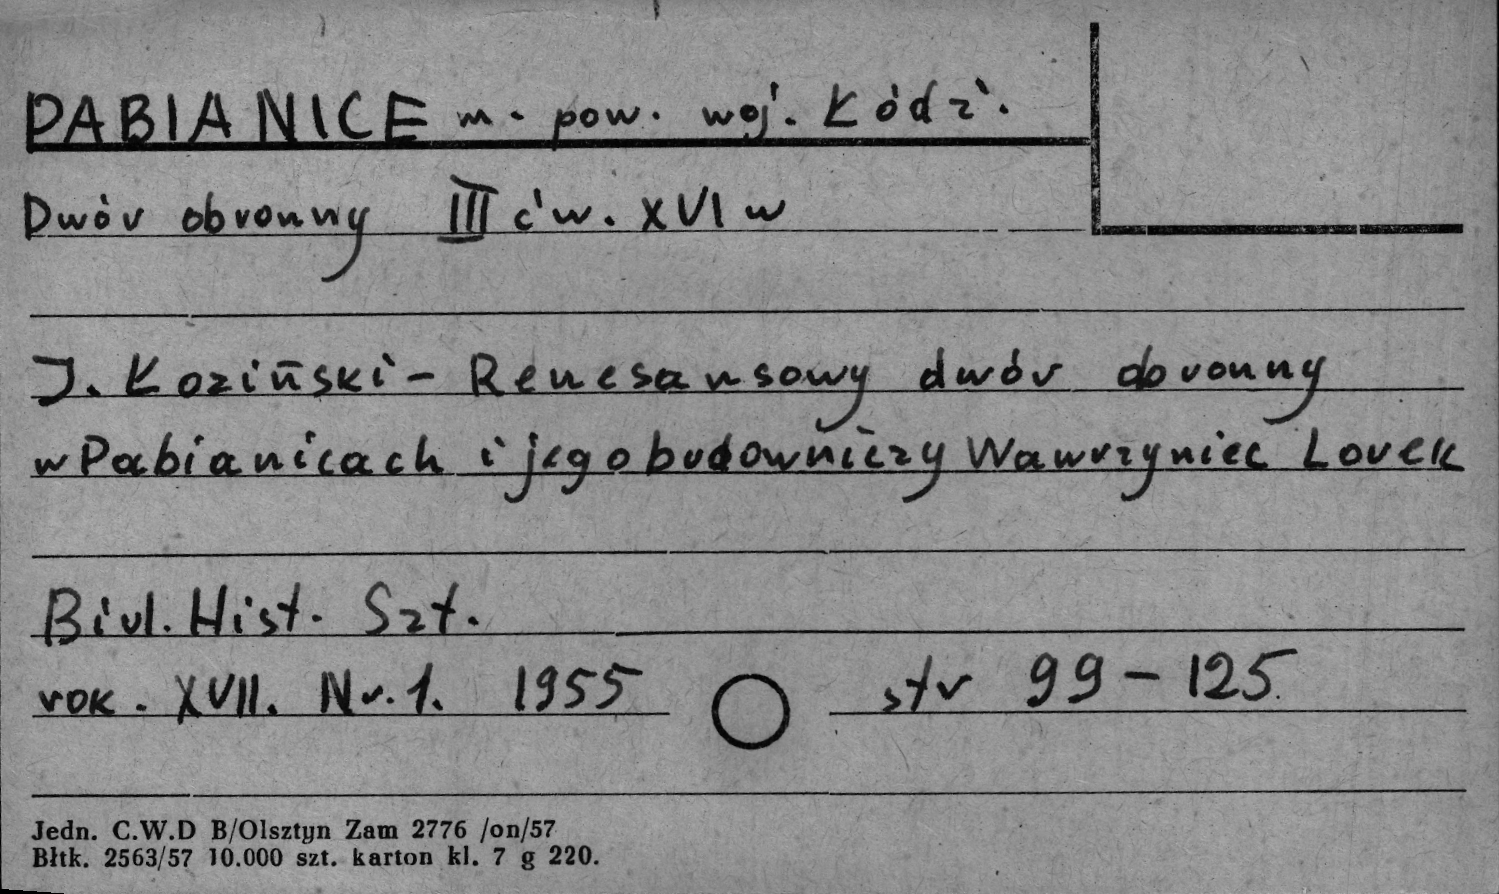 PABIANICE m. pow. woj. Łódź.
Dwór obronny III ćw. XVI w
J. Łoziński - Renesansowy dwór obronny
w Pabianicach i jego budowniczy Wawrzyniec Lorek
Biul. Hist. Szt.
rok. XVII. Nr. 1. 1955 str 99-125.
Jedn. C.W.D B/Olsztyn Zam 2776 /on/57
Błtk. 2563/57 10.000 szt. karton kl. 7 g 220.